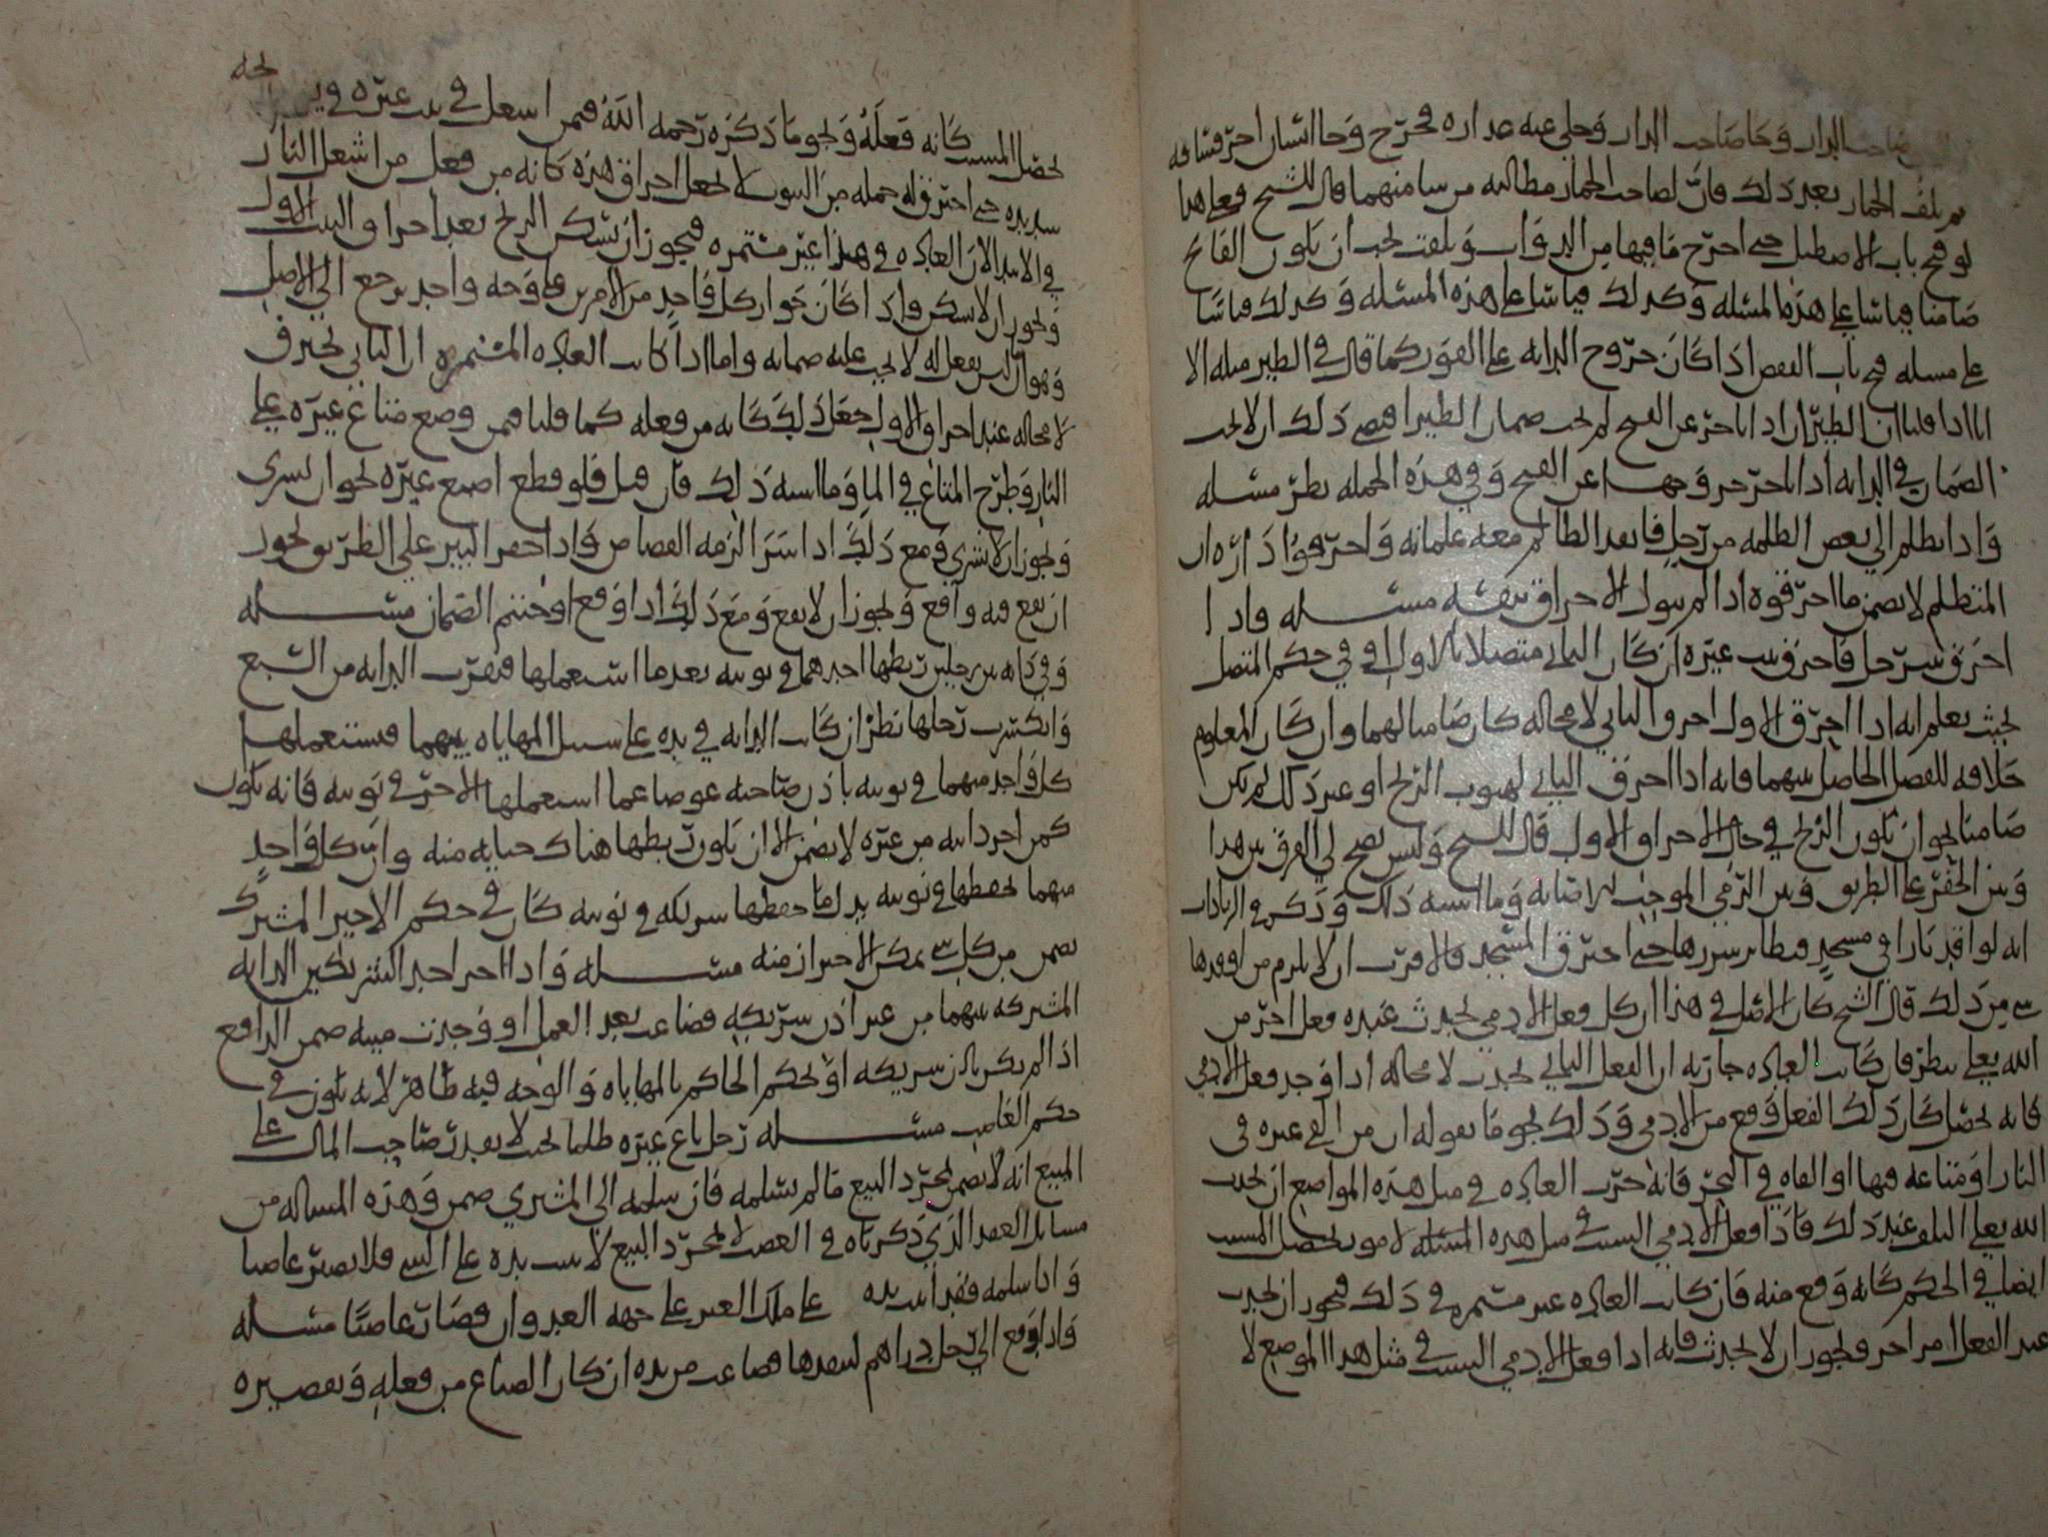 صاحب الدار وجا صاحب الدار وخلي عنه عداره فخرج وجا انسان اخر فساقه
ثم تلف الحمار بعد ذلك فان لصاحب الحمار مطالبه من سا منهما قال الشيخ فعلى هذا
لو فتح باب الاصطبل حتى اخرج ما فيها من الدواب وتلفت يجب ان يكون الفاتح
ضامنا قياسا على هذه المسئله وكذلك قياسا على هذه المسئله وكذلك قياسا
على مسله فتح باب القفص اذا كان خروج الدابه على الفور كما قال في الطير مثله الا
انا اذا قلنا ان الطير ان اذا تاخر عن الفتح لم يجب ضمان الطير اقتضى ذلك ان لا يجب
الضمان في الدابه اذا تاخر خروجها عن الفتح وفي هذه الجمله نظر مسئله
واذا تظلم الى بعض الظلمه من رجل فانفذ الظالم معه غلمانه واحرقوا داره ان
المتظلم لا يضمن ما احرقوه اذا لم يتول الاحراق بنفسه مسئله واذا
احرق بيت رجل فاحترق بيت غيره ان كان الثاني متصلا بالاول او في حكم المتصل
بحيث يعلم انه اذا احرق الاول احترق الثاني لا محاله كان ضامنا لهما وان كان المعلوم
خلافه للفصل الحاصل بينهما فانه اذا احترق الثاني لهبوب الريح او غير ذلك لم يكن
ضامنا نحو ان يكون الريح في حال الاحراق الاول قال الشيخ وليس يصح لي الفرق بين هذا
وبين الحفر على الطريق وبين الرمي الموجب للاصابه وما اشبه ذلك وذكر في الزيادات
انه لو اوقد نارا في مسجد فتطاير شررها حتى احترق المسجد فالاقرب ان لا يلزم من اوقدها
شي من ذلك قال الشيخ كان الاصل في هذا ان كل فعل الادمي يحدث عنده فعل اخر من
الله تعالى نظر فان كانت العاده جاريه ان الفعل الثاني يحدث لا محاله اذا وجد فعل الادمي
فانه يحصل كان ذلك الفعل وقع من الادمي وذلك نحو ما نقوله ان من القى غيره في
النار او متاعه فيها او القاه في البحر فانه جرت العاده في مثل هذه المواضع ان يحدث
الله تعالى التلف عند ذلك فاذا فعل الادمي السبب في مثل هذه المسئله لا مو يحصل المسبب
ايضا في الحكم كانه وقع منه فان كانت العاده غير مستمره في ذلك فيجوز ان يحدث
عند الفعل امر اخر ويجوز ان لا يحدث فانه اذا فعل الادمي السبب في مثل هذا الموضع لا
يحصل المسبب كانه فعله ونحو ما ذكره رحمه الله فيمن اشعل في بيت غيره في
حتى احترق له جمله من البيوت لا نجعل احراق هذه كانه من فعل من اشعل النار
في الابتدا لان العاده في هذا غير مستمره فيجوز ان تسكن الريح بعد احراق البيت الاول
ويجوز ان لا تسكن واذا كان جواز كل واحد من الامرين على وجه واحد يرجع الى الاصل
وهو ان ليس بفعل له لا يجب عليه ضمانه واما اذا كانت العاده المستمره ان الثاني يحترق
لا محاله عند احراق الاول جعل ذلك كانه من فعله كما قلنا فيمن وضع متاع غيره على
النار وطرح المتاع في الما وما اشبه ذلك فان قيل فلو قطع اصبع غيره يجوز ان يسري
ويجوز ان لا يسري ومع ذلك اذا سرا لزمه القصاص واذا حفر البير على الطريق يجوز
ان يقع فيه واقع ويجوز ان لا يقع ومع ذلك اذا وقع اوجبتم الضمان مسئله
وفي دابه بين رجلين ربطها احدهما في نوبته بعد ما استعملها فنفرت الدابه من السبع
وانكسرت رجلها نظر ان كانت الدابه في يده على سبيل المهاياه بينهما فيستعملها
كل واحد منهما في نوبته باذن صاحبه عوضا عما استعملها الاخر في نوبته فانه يكون
كمن اجر دابته من غيره لا يضمن الا ان يكون ربطها هناك جنايه منه وان كل واحد
منهما يحفظها في نوبته بدل ما حفظها شريكه في نوبته كان في حكم الاجير المشترك
يضمن من كل شي يمكن الاحتراز منه مسئله واذا اجر احد الشريكين الدابه
المشتركه بينهما من غير اذن شريكه فضاعت بعد العمل او وجدت ميته ضمن الدافع
اذا لم يكن باذن شريكه او بحكم الحاكم بالمهاياه والوجه فيه ظاهر لانه يكون في
حكم الغاصب مسئله رجل باع غيره ظلما بحيث لا يقدر صاحب المال على
المبيع انه لا يضمن بمجرد البيع ما لم يسلمه فان سلمه الى المشتري ضمن وهذه المساله من
مسايل العقد الذي ذكرناه في الغصب لا بمجرد البيع لا يثبت يده على الشي فلا يصير غاصبا
واذا سلمه فقد اثبت يده على ملك الغير على جهه العدوان فصار غاصبا مسئله
واذا دفع الى رجل دراهم لينقدها فضاعت من يده ان كان الضياع من فعله وتقصيره